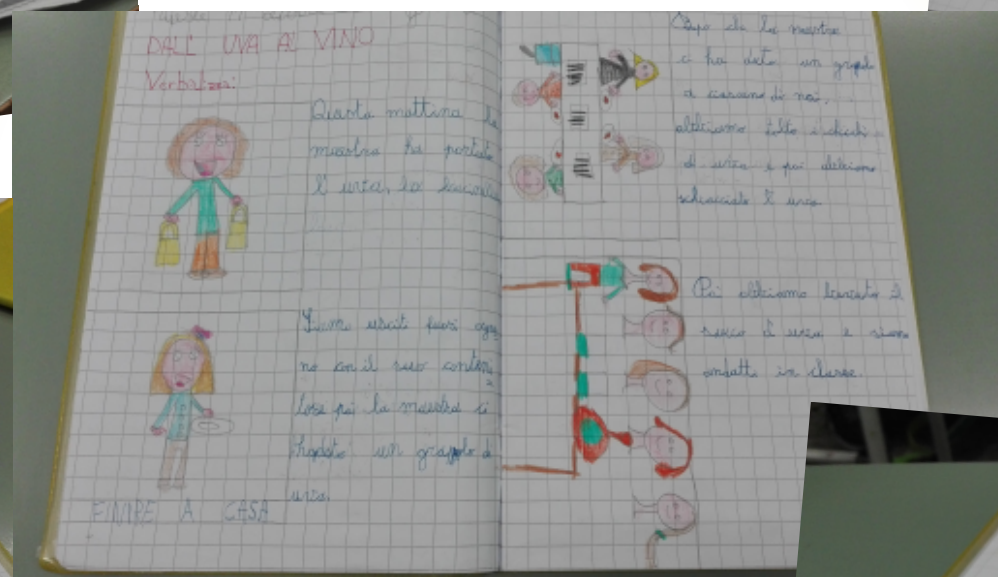 DALL' UVA AL VINO
Verbalizzo:
Questa mattina la
maestra ha portato
l'uva, la
Siamo usciti fuori ognu
no con il suo conteni
tore poi la maestra ci
un grappolo di
uva.
FINIRE A CASA
Dopo che la maestra
ci ha dato un grapolo
a ciascuno di noi,
abbiamo tolto i chichi
di uva e poi abbiamo
schiacciato l'uva
Poi abbiamo il
succo d'uva e siamo
andatti in classe.